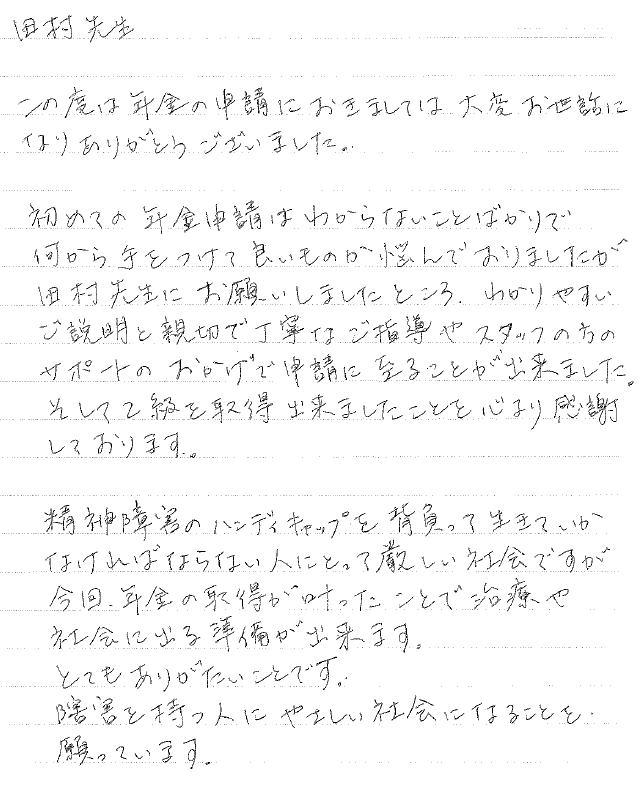 田村先生
この度は年金の申請におきましては大変お世話に
なりありがとうございました。
初めての年金申請はわからないことばかりで
何から手をつけて良いものか悩んでおりましたが
田村先生にお願いしましたところ、わかりやすい
ご説明と親切で丁寧なご指導やスタッフの方の
サポートのおかげで申請に至ることが出来ました。
そして2級を取得出来ましたことを心より感謝
しております。
精神障害のハンディキャップを背負って生きていか
なければならない人にとって厳しい社会ですが
今回、年金の取得が叶ったことで治療や
社会に出る準備が出来ます。
とてもありがたいことです。
障害を持つ人にやさしい社会になることを
願っています。